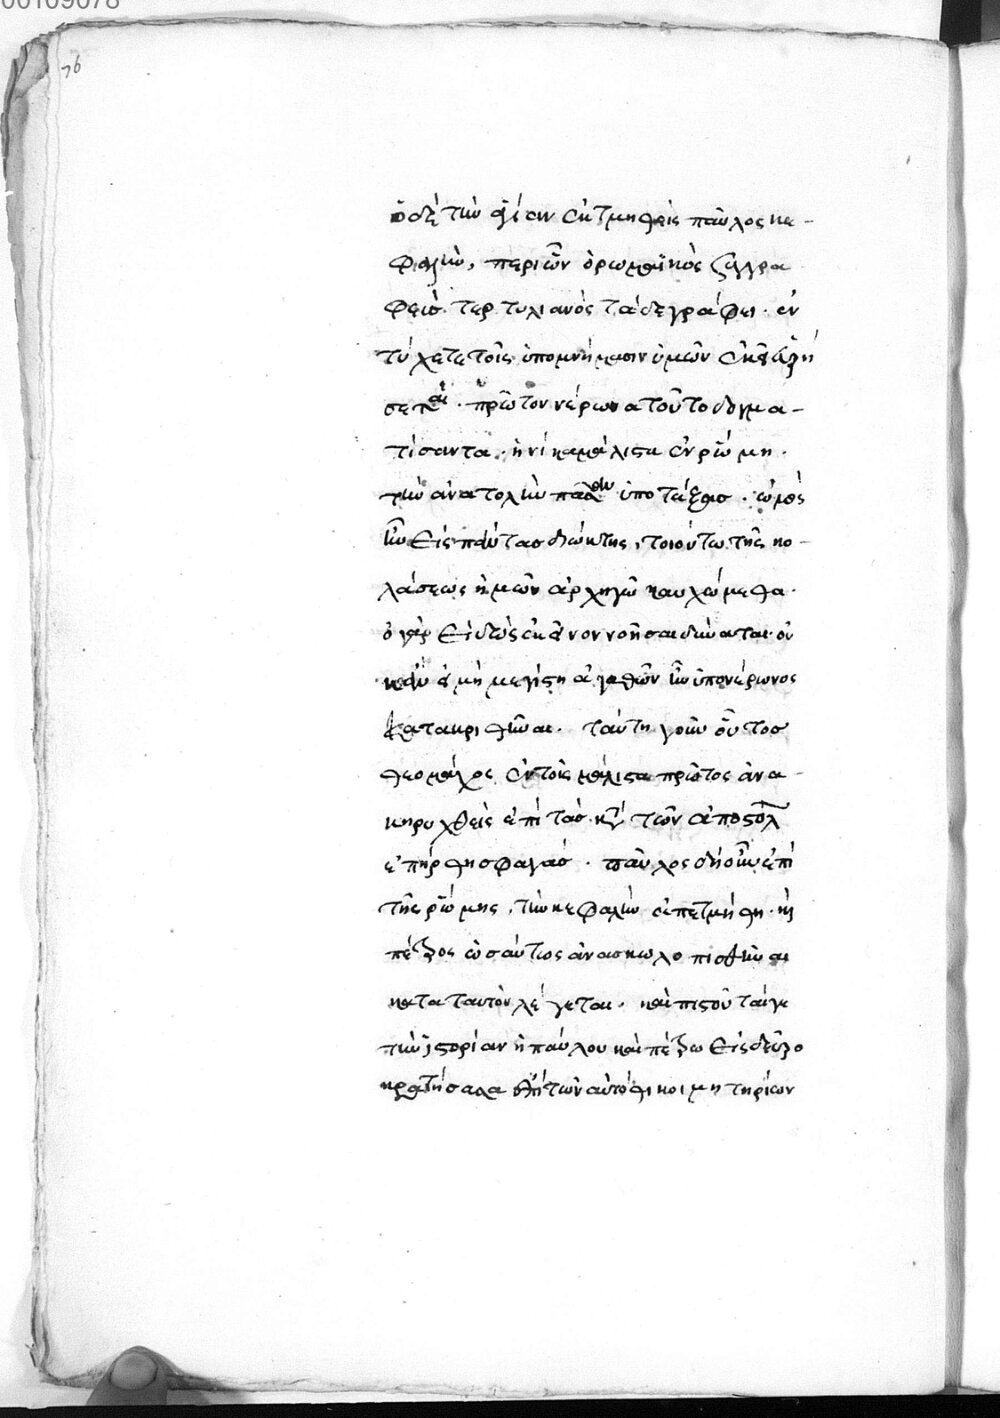 76
ὁ δὲ τὴν ἁγίαν ἐκτμηθεὶς παῦλος κε-
φαλὴν, περὶ ὧν ὁ ρωμαϊκὸς συγγρα
φεὺς τερτυλιανὸς τάδε γράφει· ἐν
τύχετε τοῖς ὑπομνήμασιν ὑμῶν ἐκεῖ εὑρή
σεται· πρῶτον νέρωνα τοῦτο δογμα-
τίσαντα· ἡνίκα μάλιστα ἐν ρώμη·
τὴν ἀνατολὴν πᾶσαν ὑποτάξας· ὠμὸς
ἦν εἰς πάντας διώκτης, τοιούτω τῆς κο-
λάσεως ἡμῶν ἀρχηγῶ καυχώμεθα·
ὁ γὰρ εἰδὼς ἐκεῖνον νοῆσαι δύναται· οὐ
κἂν εἰ μὴ μεγίστη ἀγαθῶν ἦν ὑπο νέρωνος
κατακριθῆναι· ταύτη γοῦν οὗτος
θεομάχος ἐν τοῖς μάλιστα πρῶτος ἀνα-
κηρυχθεὶς ἐπὶ τὰς κατὰ τῶν ἀποστόλ
ἐπήρθη σφαγάς· παῦλος δὴ οὖν ἐπὶ
τῆς ρώμης, τὴν κεφαλὴν ἀπετμήθη· καὶ
πέτρος ὡσαύτως ἀνασκωλοπισθῆναι
κατα ταυτὸν λέγεται· καὶ πιστοῦται γε
τὴν ἱστορίαν ἡ παύλου καὶ πέτρω εἰς δεῦρο
κρατήσασα ἐπὶ τῶν αὐτόθι κοιμητηρίων